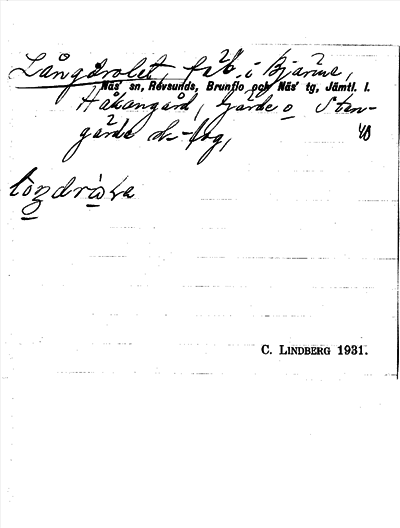 Långdrolet, fäb. i Bjärme,
Näs' sn, Revsunds, Brunflo och Näs' tg, Jämtl. l.
Håkangård, Gärde o Sten-
gärde sk-lag,
C. LINDBERG 1931.